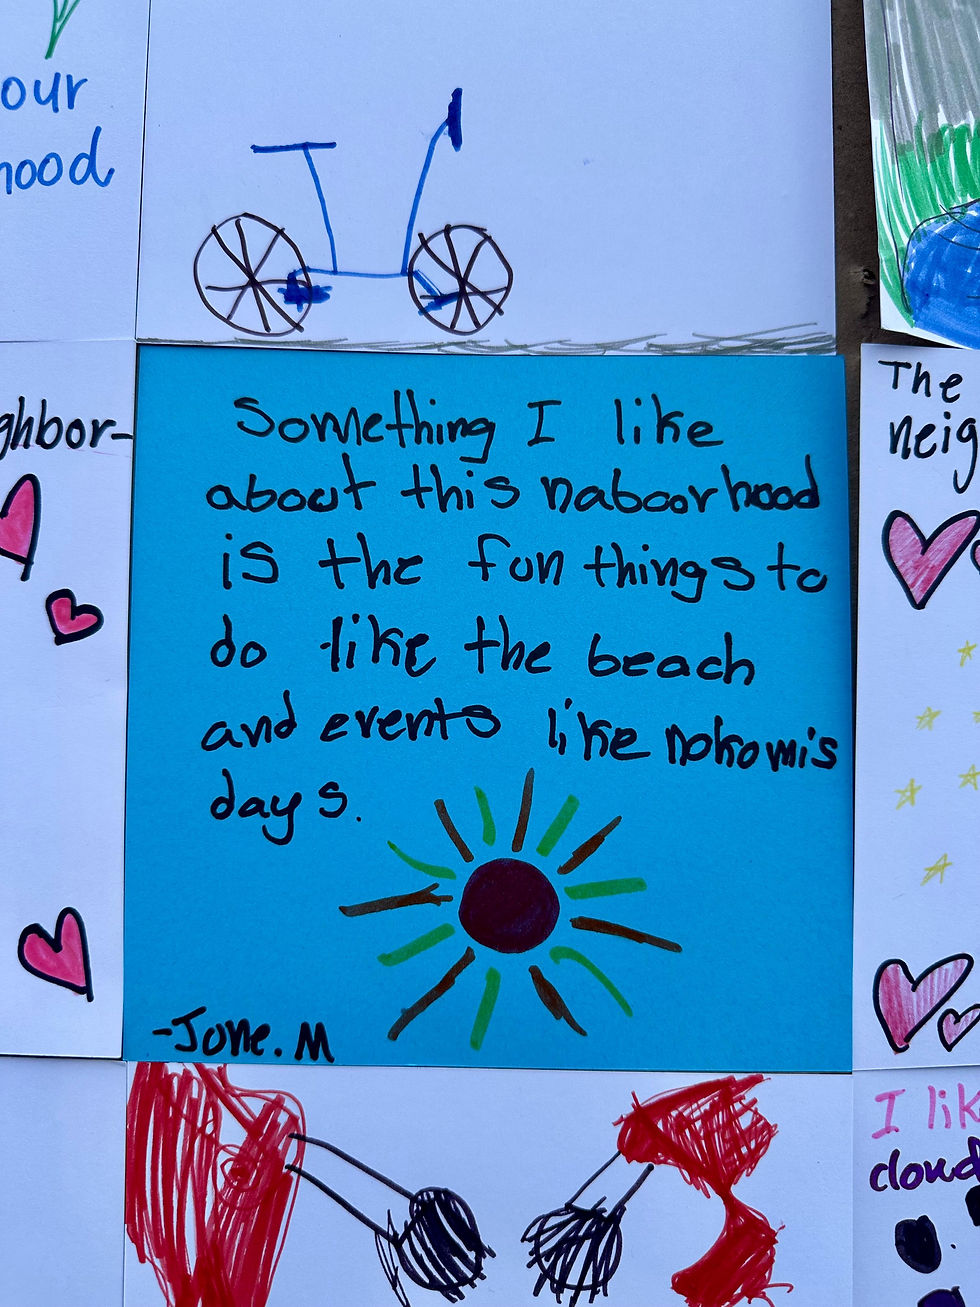 our
hood
ghbor-
Something I like
about this naboorhood
is the fun things to
do like the beach
and events like nokomis
days.
-June.M
The
neig
I lik
cloud